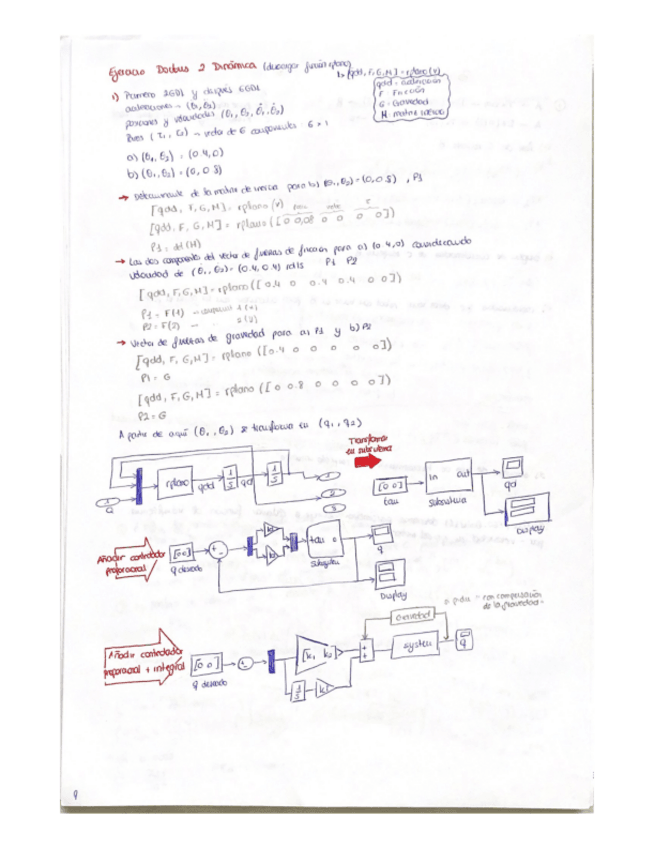 Ejercicio Doctus 2 Dinámica (descargar función rplano)
↳ [qdd, F, G, M] = rplano (v)
qdd = aceleración
F = Fricción
G = Gravedad
M = matriz inercia
1) Primero 2GDL y después 6GDL
aceleraciones → (θ̈1, θ̈2)
posiciones y velocidades (θ1, θ2, θ̇1, θ̇2)
Pares (τ1, τ2) → vector de 6 componentes 6x1
a) (θ1, θ2) = (0.4, 0)
b) (θ1, θ2) = (0, 0.8)
→ Determinante de la matriz de inercia para b) (θ1, θ2) = (0, 0.8), P1
[qdd, F, G, M] = rplano (v)
[qdd, F, G, M] = rplano ([0 0,08 0 0 0 0])
P1 = det (M)
→ Las dos componentes del vector de fuerzas de fricción para a) (0.4, 0) considerando
velocidad de (θ̇1, θ̇2) = (0.4, 0.4) rd/s P1 P2
[qdd, F, G, M] = rplano ([0.4 0 0.4 0.4 0 0])
P1 = F(1)
P2 = F(2)
→ Vector de fuerzas de gravedad para a) P1 y b) P2
[qdd, F, G, M] = rplano ([0.4 0 0 0 0 0])
P1 = G
[qdd, F, G, M] = rplano ([0 0.8 0 0 0 0])
P2 = G
A partir de aquí (θ1, θ2) se transforma en (q1, q2)
Transformar
en subsistema
rplano qdd 1/s qd 1/s 1
2
3
1
Q
[0 0] tau In out Subsistema qd Display
Añadir controlador
proporcional
[0 0] q deseado + - tau Subsystem q
Display
pdu - con compensación
de la gravedad
Añadir controlador
proporcional + integral
[0 0] q deseado [k1 k2] + + system q
Gravedad
1/s
9